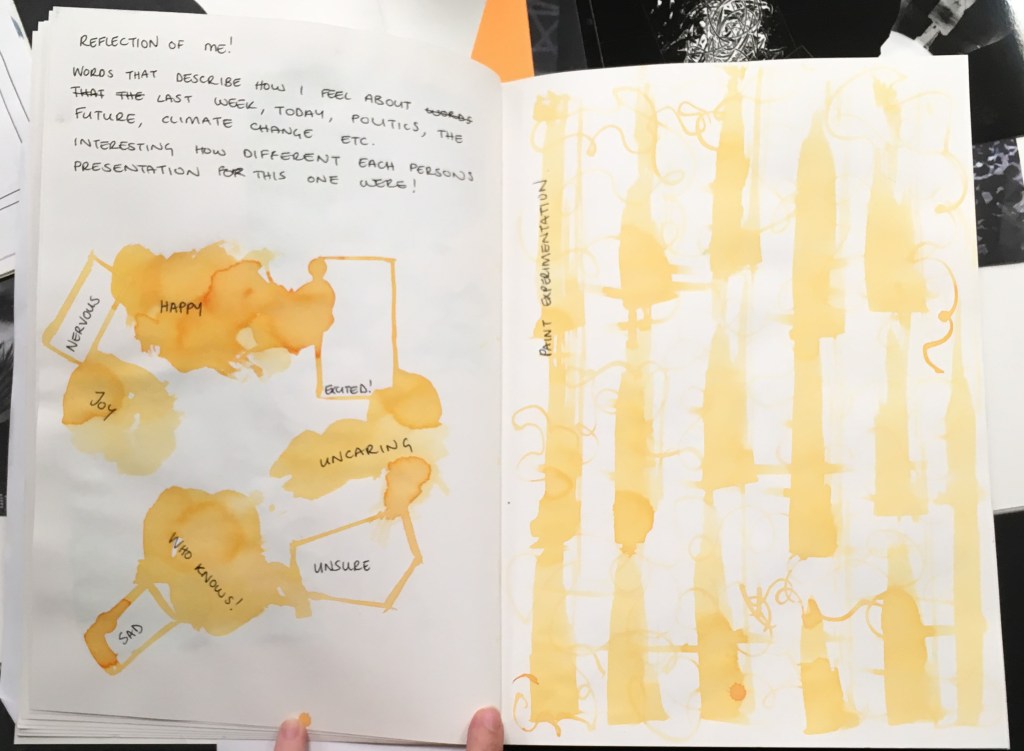 REFLECTION OF ME!
WORDS THAT DESCRIBE HOW I FEEL ABOUT WORDS
THAT THE LAST WEEK, TODAY, POLITICS, THE
FUTURE, CLIMATE CHANGE ETC.
INTERESTING HOW DIFFERENT EACH PERSONS
PRESENTATION FOR THIS ONE WERE!
NERVOUS
HAPPY
EXCITED!
JOY
UNCARING
WHO KNOWS!
UNSURE
SAD
PAINT EXPERIMENTATION